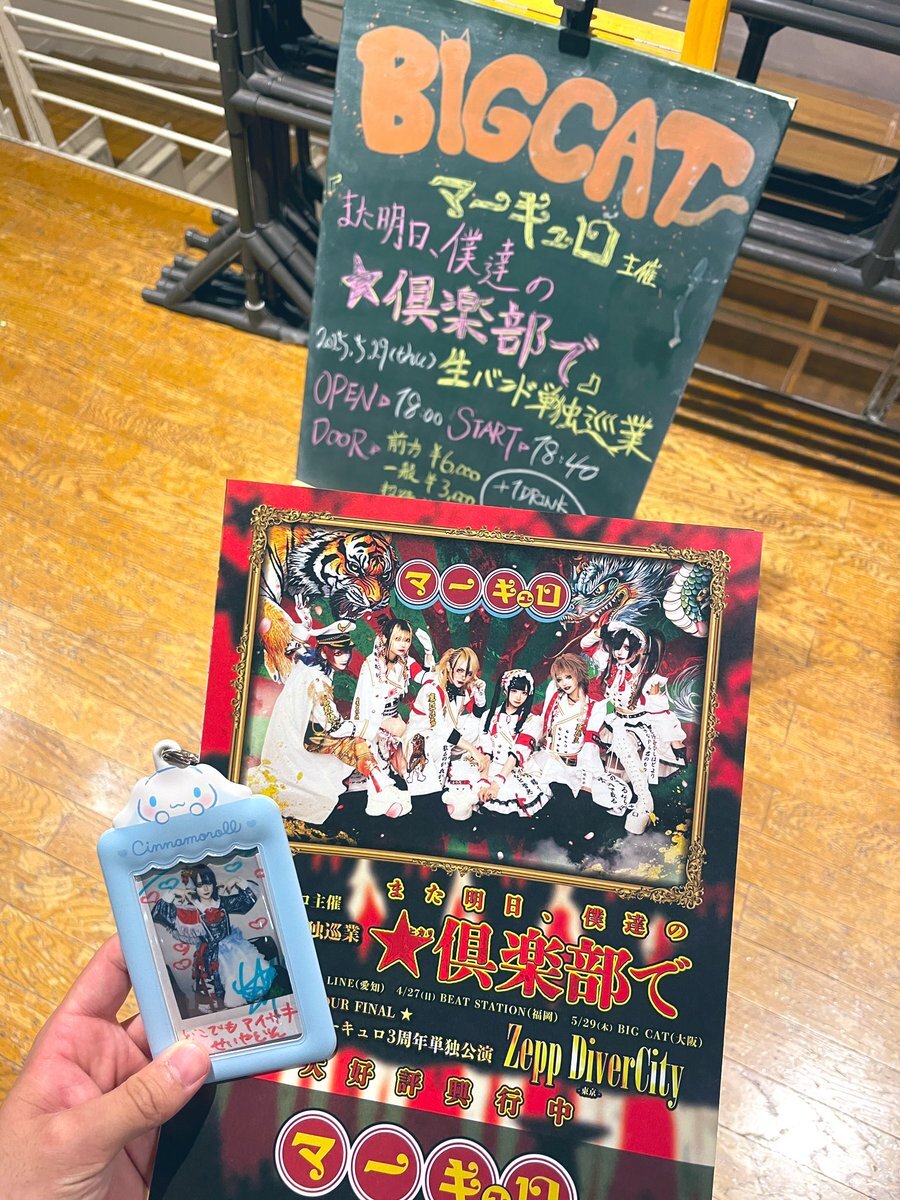 BIGCAT
マーキュロ 主催
『また明日、僕達の
★倶楽部で』
2025.5.29(thu) 生バンド単独巡業
OPEN▷18:00 START▷18:40
DOOR▷前方 ¥6,000
一般 ¥3,000
+1DRINK
マーキュロ
また明日、僕達の
★倶楽部で
ロ主催
独巡業
LINE(愛知) 4/27(日) BEAT STATION(福岡) 5/29(木) BIG CAT(大阪)
OUR FINAL ★
ーキュロ3周年単独公演 Zepp DiverCity
-東京-
大好評興行中
マーキュロ
Cinnamoroll
どこでもアイサキ